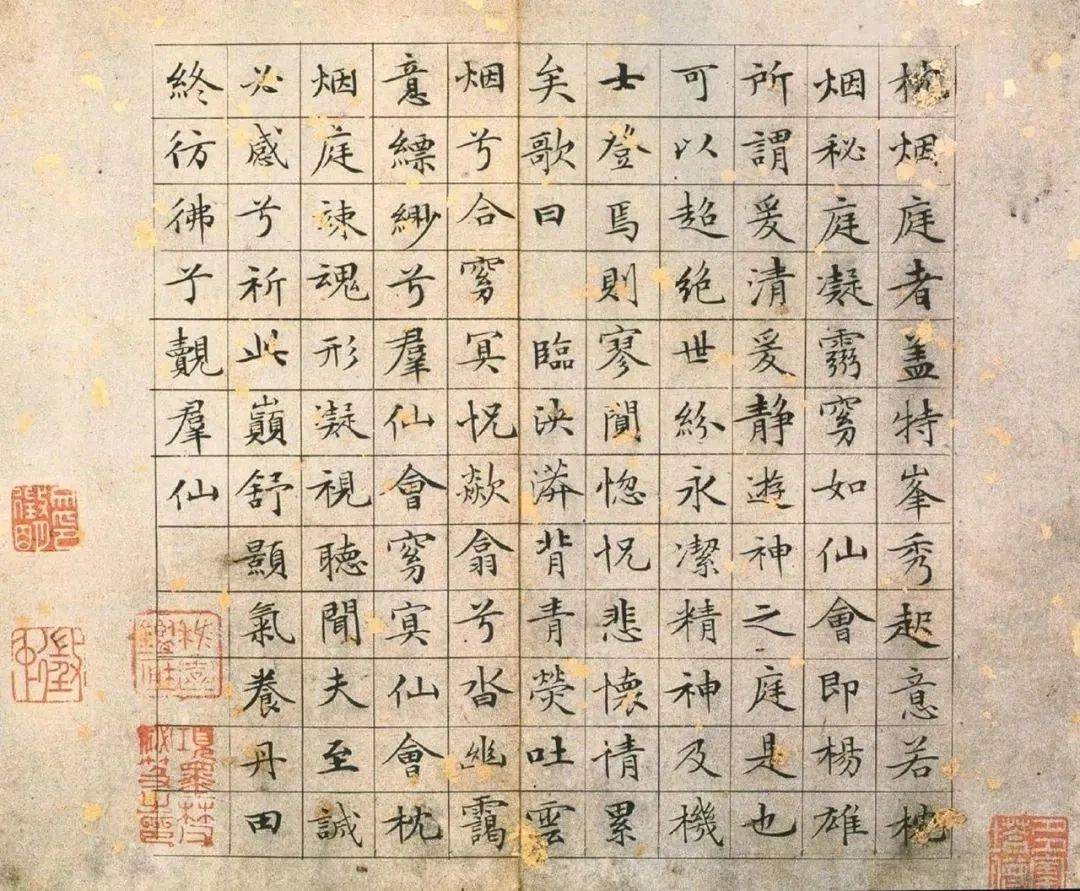 枕烟庭者盖特峯秀起意若枕
烟秘庭凝霛窈如仙會即楊雄
所謂爰清爰静遊神之庭是也
可以超絶世紛永潔精神及機
士登焉則寥閴惚怳悲懷情累
矣歌曰 臨泱漭背青熒吐雲
烟兮合窈冥怳欻翕兮沓幽靄
意縹緲兮羣仙會窈冥仙會枕
烟庭竦魂形凝視聽聞夫至誠
必感兮祈此巔舒顥氣養丹田
終彷彿兮覿羣仙